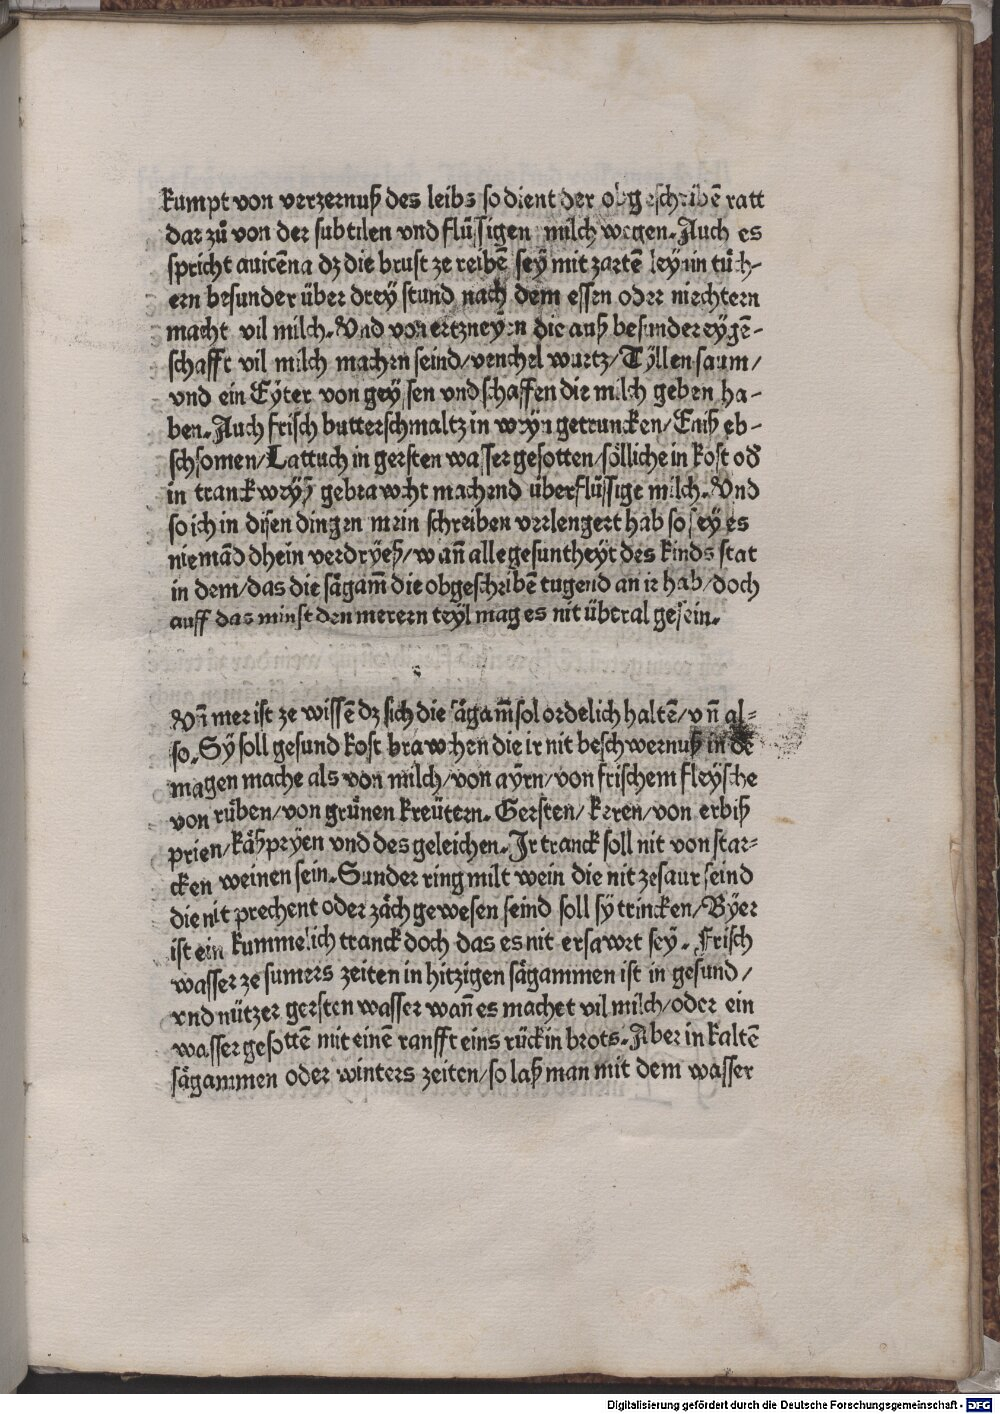 kumpt von verzernuß des leibs so dient der obgeschribē ratt
dar zů von der subtilen vnd flüssigen milch wegen. Auch es
spricht auicēna dz die brust ze reibē seÿ mit zartē leÿnin tüch-
ern besunder über dreÿ stund nach dem essen oder niechtern
macht vil milch. Vnd von ertzneyen die auß besunder eÿgē-
schafft vil milch machen seind/venchel wurtz/Tÿllen saum/
vnd ein Eÿter von geÿssen vnd schaffen die milch geben ha-
ben. Auch frisch butterschmaltz in weÿn getruncken/Eniß eb-
schsomen/Lattuch in gersten wasser gesotten/sölliche in kost od̄
in tranck weÿß gebrawcht machend überflüssige milch. Vnd
so ich in disen dingen mein schreiben verlengert hab so seÿ es
niemād dhein verdryeß/wañ alle gesuntheyt des kinds stat
in dem/das die sägam̄ die obgeschribē tugend an ir hab/doch
auff das minst den merern teyl mag es nit überal gesein.
Vñ mer ist ze wissē dz sich die sägam̄ sol ordelich haltē/vñ al-
so. Sÿ soll gesund kost brawchen die ir nit beschwernuß in dē
magen mache als von milch/von aÿrn/von frischem fleÿsche
von rüben/von grünen kreütern. Gersten/keren/von erbiß
prien/käßpryen vnd des geleichen. Ir tranck soll nit von star-
cken weinen sein. Sunder ring milt wein die nit ze saur seind
die nit prechent oder zäch gewesen seind soll sÿ trincken/Bÿer
ist ein kummelich tranck doch das es nit ersawrt seÿ. Frisch
wasser ze sumers zeiten in hitzigen sägammen ist in gesund/
vnd nützer gersten wasser wañ es machet vil milch/oder ein
wasser gesottē mit einē ranfft eins rückin brots. Aber in kaltē
sägammen oder winters zeiten/so laß man mit dem wasser
Digitalisierung gefördert durch die Deutsche Forschungsgemeinschaft - DFG